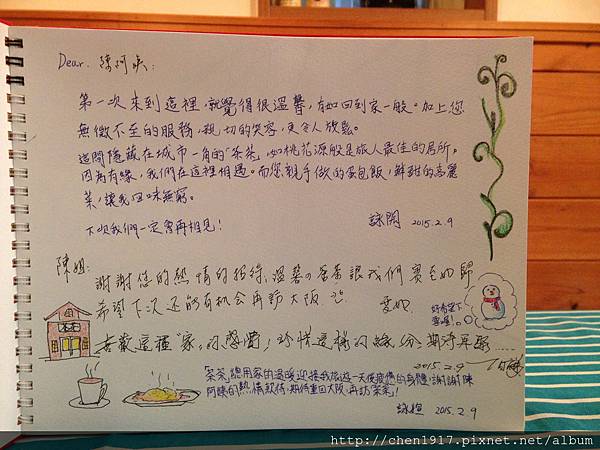 Dear. 陳阿姨：
第一次來到這裡，就覺得很溫馨，有如回到家一般。加上您
無微不至的服務，親切的笑容，更令人放鬆。
這間隱藏在城市一角的「茶茶」，如桃花源般是旅人最佳的居所。
因為有緣，我們在這裡相遇。而您親手做的蛋包飯，鮮甜的高麗
菜，讓我回味無窮。
下次我們一定會再相見！
詠閔 2015.2.9
陳姐：
謝謝您的熱情的招待，溫馨的茶茶讓我們賓至如歸
希望下次還能有机会再訪大阪
愛如
好希望下
雪喔！
喜歡這種"家"的感覺，珍惜這樣的緣份，期待再聚......
2015.2.9
茶茶總用家的溫暖迎接我旅遊一天後疲憊的身體，謝謝陳
阿姨的熱情款待，期待重回大阪，再訪茶茶！
2015.2.9
http://chen1917.pixnet.net/album